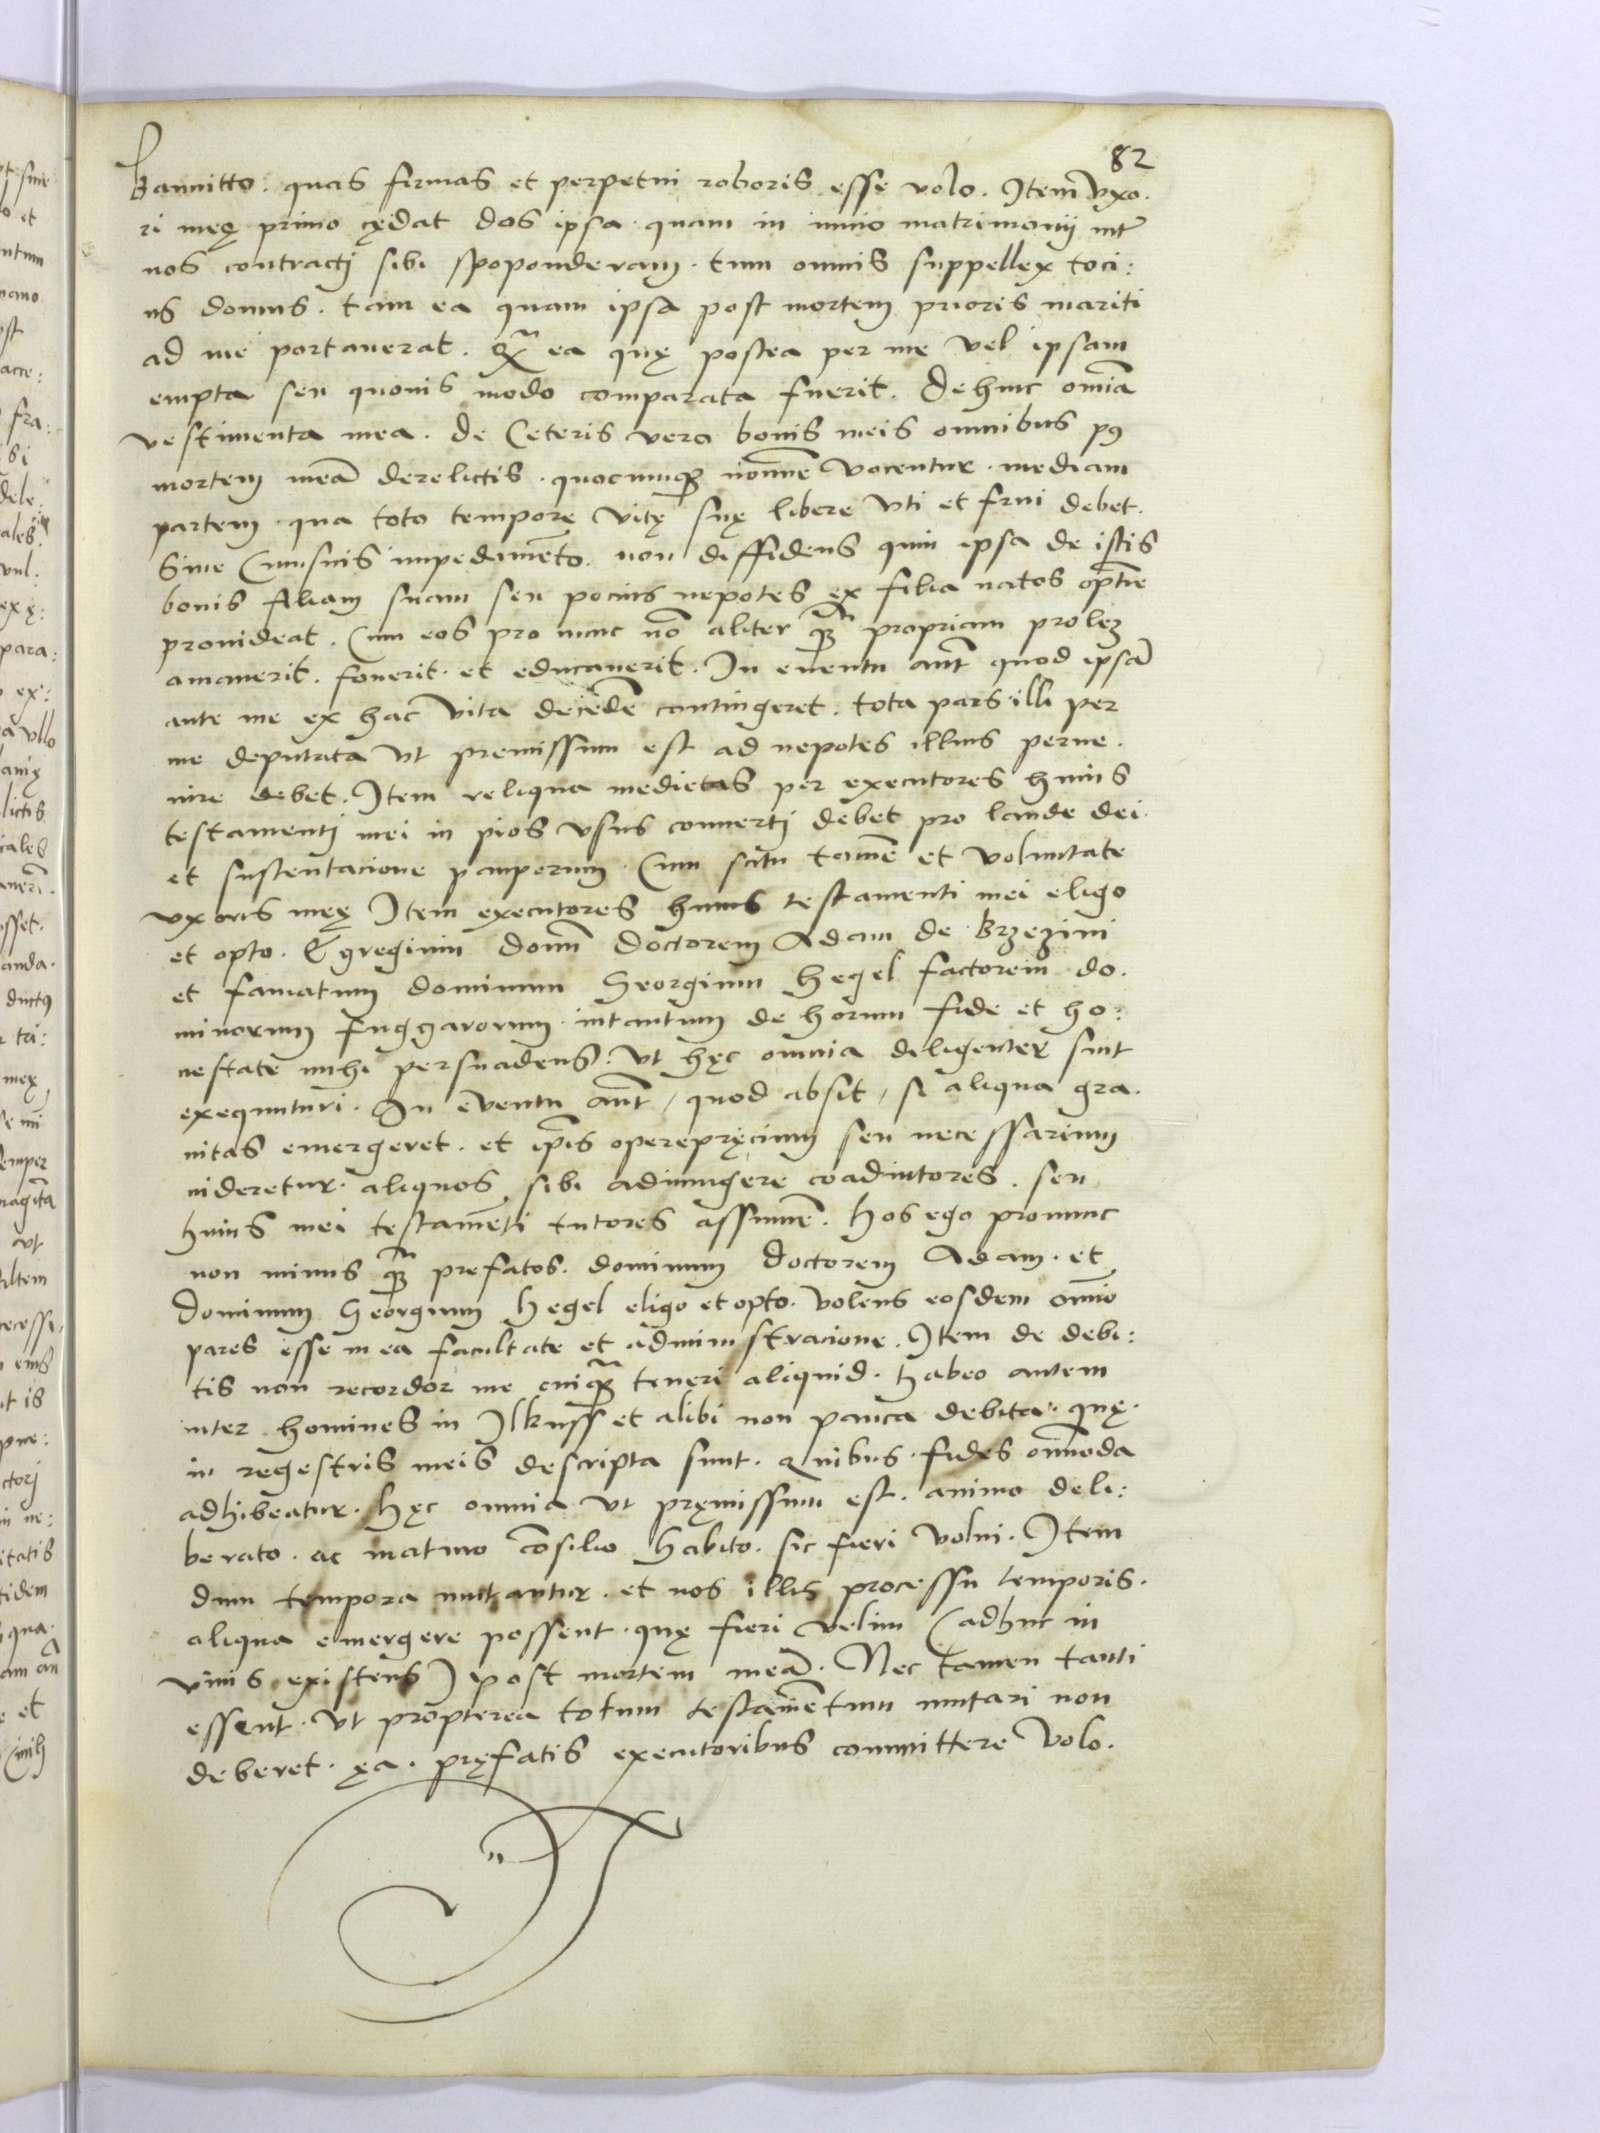 82
Bannitto. quas firmas et perpetui roboris esse volo. Item Uxo.
ri meę primo cędat dos ipsa. quam in inicio matrimonij int̃
nos contractj sibi spoponderam. tum omnis suppellex toci:
us domus. tam ea quam ipsa post mortem prioris mariti
ad me portauerat. q̃ ea quę postea per me vel ipsam
empta seu quouis modo comparata fuerit. Dehinc om̃ia
vestimenta mea. de Ceteris vero bonis meis omnibus p9
mortem meã derelictis. quocumq̃ nomine vocentur. mediam
partem. qua toto temporę vitę suę libere vti et frui debet.
Sine Cuiusuis impedimẽto. non diffidens quin ipsa de istis
bonis filiam suam seu pocius nepotes ex filia natos optĩe
prouideat. Cum eos pro nunc nõ aliter q̃ propriam prolez
amauerit. fouerit. et educauerit. In euentu aut̃ quod ipsã
ante me ex hac vita decedẽ contingeret. tota pars illi per
me deputata vt premissum est ad nepotes illius perue.
nire debet. Item reliqua medietas per executores huius
testamentj mei in pios vsus conuertj debet pro laude dei.
et sustentacione pauperum. Cum scitu tamẽ et voluntate
vxoris meę Item executores huius testamenti mei eligo
et opto. Egregium domĩ doctorem Adam de Brzezini
et famatum dominum Georgium Hegel factorem do.
minorum Fuggarorum. intantum de horum fide et ho:
nestate mihi persuadens. vt hęc omnia diligenter sint
exequuturi. In euentu aut̃, quod absit, si aliqua gra.
uitas emergeret. et ip̃is operepręcium seu necessarium
uideretur. aliquos sibi adiungere coadiutores. seu
huius mei testamẽti tutores assumẽ. hos ego pronunc
non minus q̃ prefatos. dominum doctorem Adam. et
dominum Georgium Hegel eligo et opto. volens eosdem om̃io
pares esse in ea facultate et administracione. Item de debi:
tis non recordor me cuiq̃ teneri aliquid. habeo autem
inter homines in Ilkussz et alibi non pauca debita. quę.
in regestris meis descripta sunt. quibus. fides om̃moda
adhibeatur. hęc omnia vt pręmissum est. animo deli:
berato. ac maturo cõsilio habito. sic fieri volui. Item
dum tempora mutantur. et nos illis processu temporis.
aliqua emergere possent. quę fieri velim (adhuc in
viuis existens) post mortem meã. Nec tamen tanti
essent. vt propterea totum testamẽtum mutari non
deberet. ęa. pręfatis executoribus committere volo.